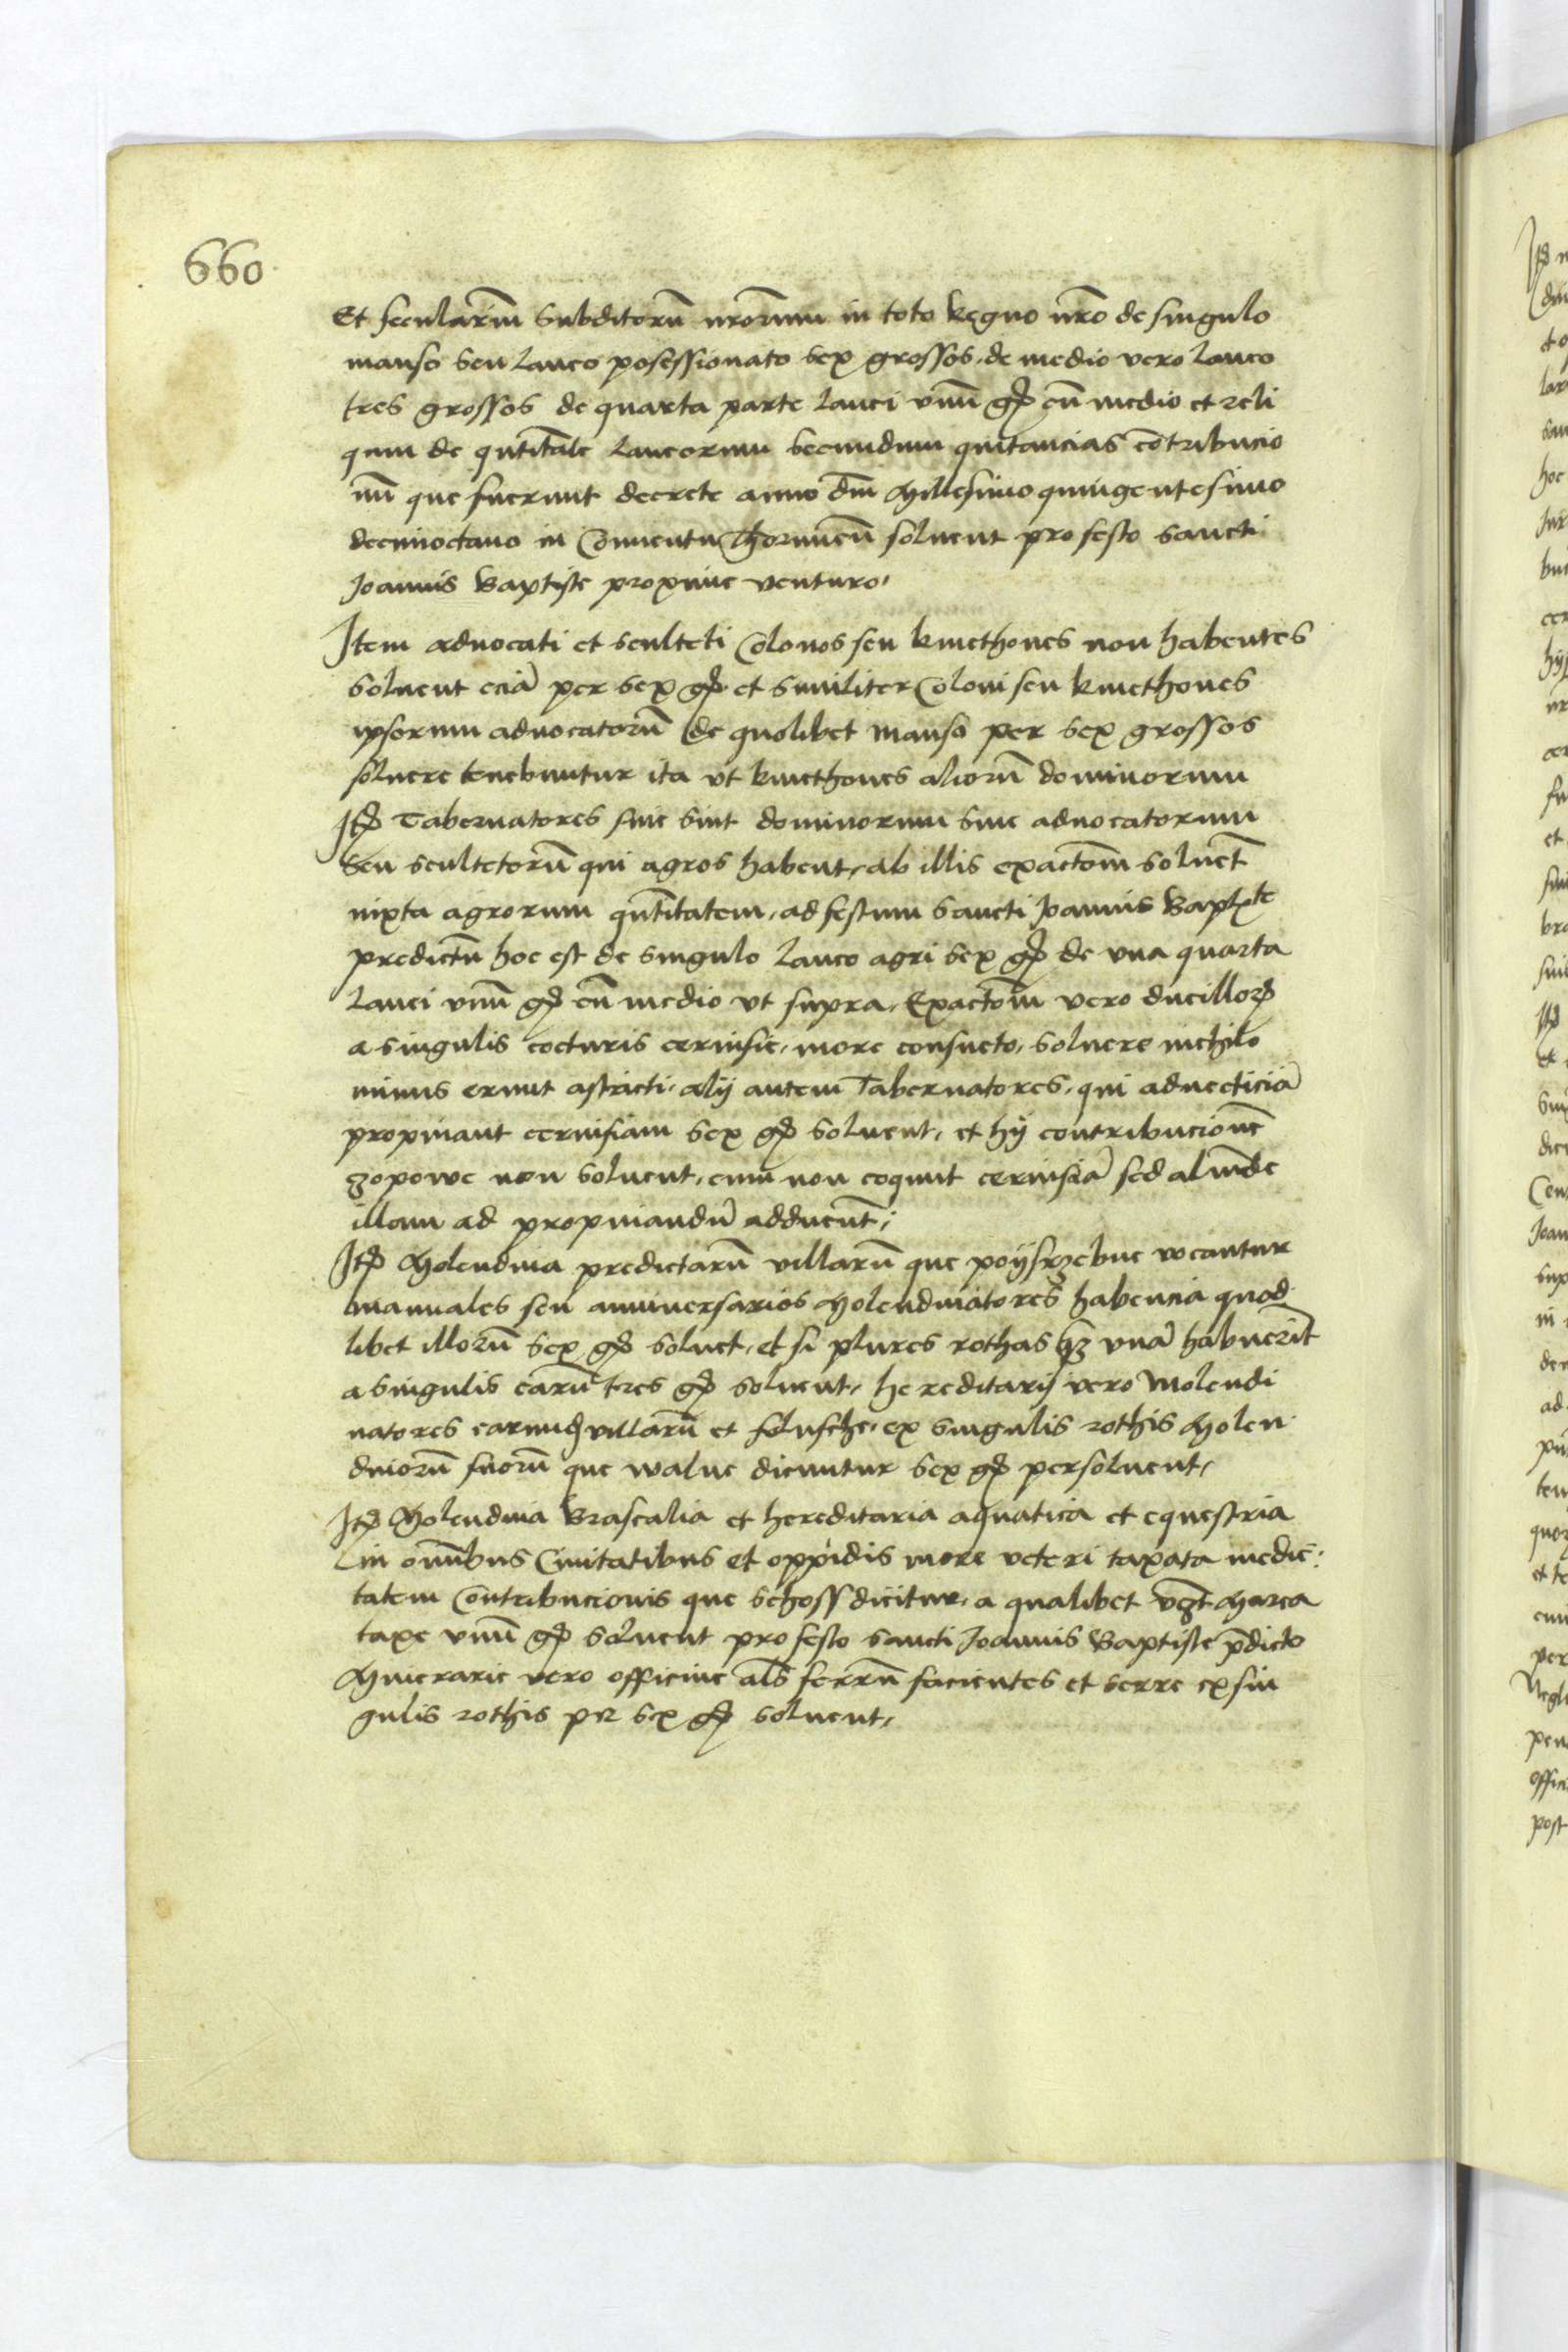 660
Et seculariū subditorū nrōrum in toto Regno nrō de singulo
manso seu laneo posessionato sex grossos, de medio vero laneo
tres grossos de quarta parte lanei vnū gr̃ cū medio et reli
quum de qn̄titāte laneorum secundum quitancias cōtribucio
nū que fuerunt decrete anno dm̄ Millesimo quingentesimo
decimoctauo in Conuentu Thorunen̄ soluent pro festo Sancti
Joannis Baptiste proxime venturo,
Item aduocati et sculteti Colonos seu kmethones non habentes
soluent eciā per sex gr̃ et similiter Coloni seu kmethones
ipsorum aduocatorū de quolibet manso per sex grossos
soluere tenebuntur ita vt kmethones aliorū dominorum
Itē Tabernatores siue sint dominorum siue aduocatorum
seu scultetorū qui agros habent, ab illis exactōm soluēt
iuxta agrorum qn̄titatem, ad festum Sancti Joannis Bapt̃te
predictū hoc est de singulo laneo agri sex gr̃ de vna quarta
lanei vnū gr̃ cū medio vt supra, Exactōm vero ducillor̃
a singulis cocturis ceruisie, more consueto, soluere nichilo
minus erunt astricti, alij autem Tabernatores, qui aduecticiā
propinant ceruisiam sex gr̃ soluent, et hij contribucionē
czopowe non soluent, cum non coquunt ceruisiā sed aliūde
illam ad propinandū adducūt;
Itē Molendina predictarū villarū que poijsrzebne vocantur
manuales seu anniuersarios Molendinatores habencia quod
libet illorū sex gr̃ soluet, et si plures rothas q̃ vnā habuerīt
a singulis earū tres gr̃ soluent, hereditarij vero Molendi
natores earundē villarū et solusche, ex singulis rothis Molen
dinorū suorū que walne dicuntur sex gr̃ persoluent,
Itē Molendina Brasealia et hereditaria aquatica et equestria
in omībus Ciuitatibus et oppidis more veteri taxata medie
tatem Contribucionis que schoss dicitur, a qualibet vz̄t Marca
taxe vnū gr̃ soluent pro festo Sancti Joannis Baptiste p̄dicto
Minerarie vero officine als̄ ferrū facientes et serre ex sin
gulis rothis per sex gr̃ soluent,